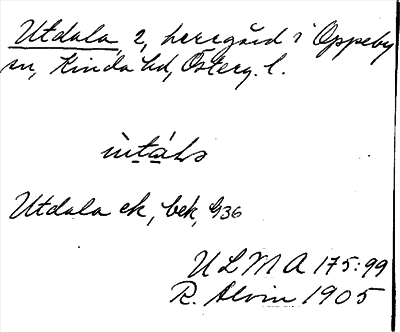 Utdala, 2, herrgård i Oppeby
sn, Kinda hd, Österg. l.
Utdala ek, bek, G36
ULMA 175:99
R. Alvin 1905